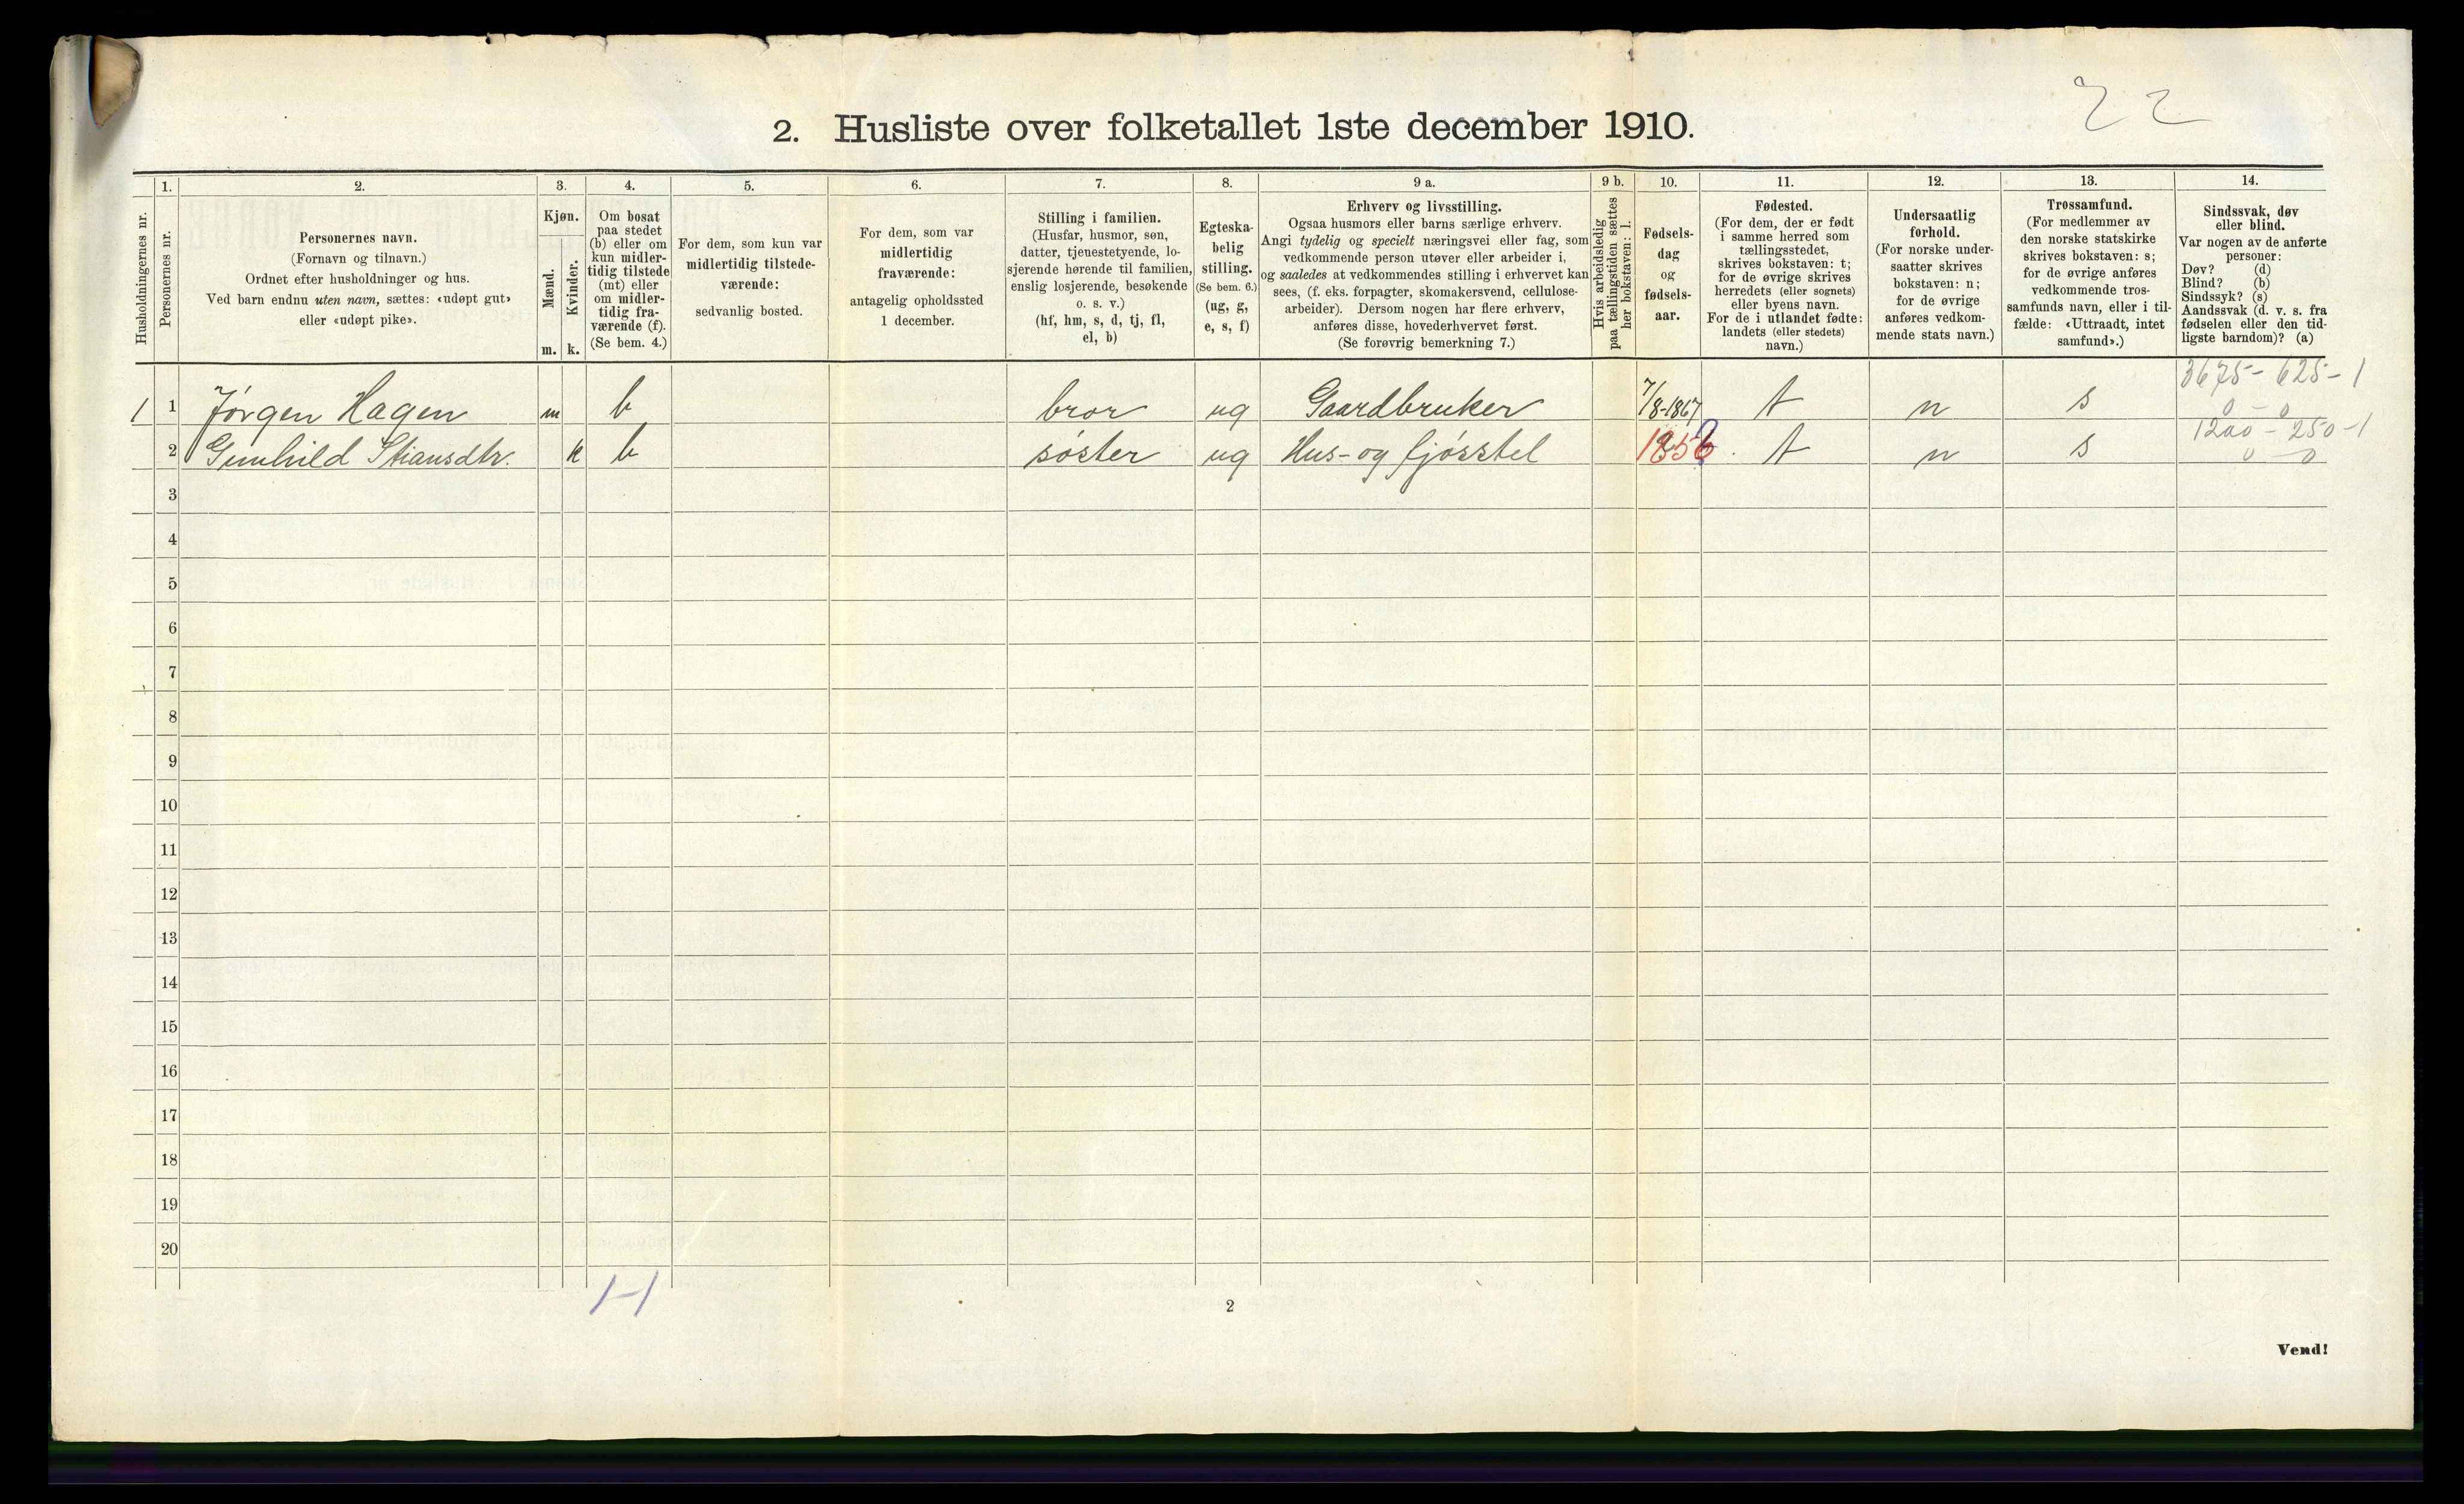 22
2. Husliste over folketallet 1ste december 1910.
Husholdningernes nr.
1.
Personernes nr.
2.
Personernes navn.
(Fornavn og tilnavn.)
Ordnet efter husholdninger og hus.
Ved barn endnu uten navn, sættes: «udøpt gut»
eller «udøpt pike».
3.
Kjøn.
Mænd.
Kvinder.
m. k.
4.
Om bosat
paa stedet
(b) eller om
kun midler-
tidig tilstede
(mt) eller
om midler-
tidig fra-
værende (f).
(Se bem. 4.)
5.
For dem, som kun var
midlertidig tilstede-
værende:
sedvanlig bosted.
6.
For dem, som var
midlertidig
fraværende:
antagelig opholdssted
1 december.
7.
Stilling i familien.
(Husfar, husmor, søn,
datter, tjenestetyende, lo-
sjerende hørende til familien,
enslig losjerende, besøkende
o. s. v.)
(hf, hm, s, d, tj, fl,
el, b)
8.
Egteska-
belig
stilling.
(Se bem. 6.)
(ug, g,
e, s, f)
9 a.
Erhverv og livsstilling.
Ogsaa husmors eller barns særlige erhverv.
Angi tydelig og specielt næringsvei eller fag, som
vedkommende person utøver eller arbeider i,
og saaledes at vedkommendes stilling i erhvervet kan
sees, (f. eks. forpagter, skomakersvend, cellulose-
arbeider). Dersom nogen har flere erhverv,
anføres disse, hovederhvervet først.
(Se forøvrig bemerkning 7.)
9 b.
Hvis arbeidsledig
paa tællingstiden sættes
her bokstaven: l.
10.
Fødsels-
dag
og
fødsels-
aar.
11.
Fødested.
(For dem, der er født
i samme herred som
tællingsstedet,
skrives bokstaven: t;
for de øvrige skrives
herredets (eller sognets)
eller byens navn.
For de i utlandet fødte:
landets (eller stedets)
navn.)
12.
Undersaatlig
forhold.
(For norske under-
saatter skrives
bokstaven: n;
for de øvrige
anføres vedkom-
mende stats navn.)
13.
Trossamfund.
(For medlemmer av
den norske statskirke
skrives bokstaven: s;
for de øvrige anføres
vedkommende tros-
samfunds navn, eller i til-
fælde: «Uttraadt, intet
samfund».)
14.
Sindssvak, døv
eller blind.
Var nogen av de anførte
personer:
Døv? (d)
Blind? (b)
Sindssyk? (s)
Aandssvak (d. v. s. fra
fødselen eller den tid-
ligste barndom)? (a)
3675 - 625 - 1
1 1 Jørgen Hagen m b bror ug Gaardbruker 7/8-1867 t n s 0 - 0
1200 - 250 - 1
2 Gunhild Stiansdtr. k b søster ug Hus- og fjøsstel t n s 0 - 0
3
4
5
6
7
8
9
10
11
12
13
14
15
16
17
18
19
20
1-1
2
Vend!